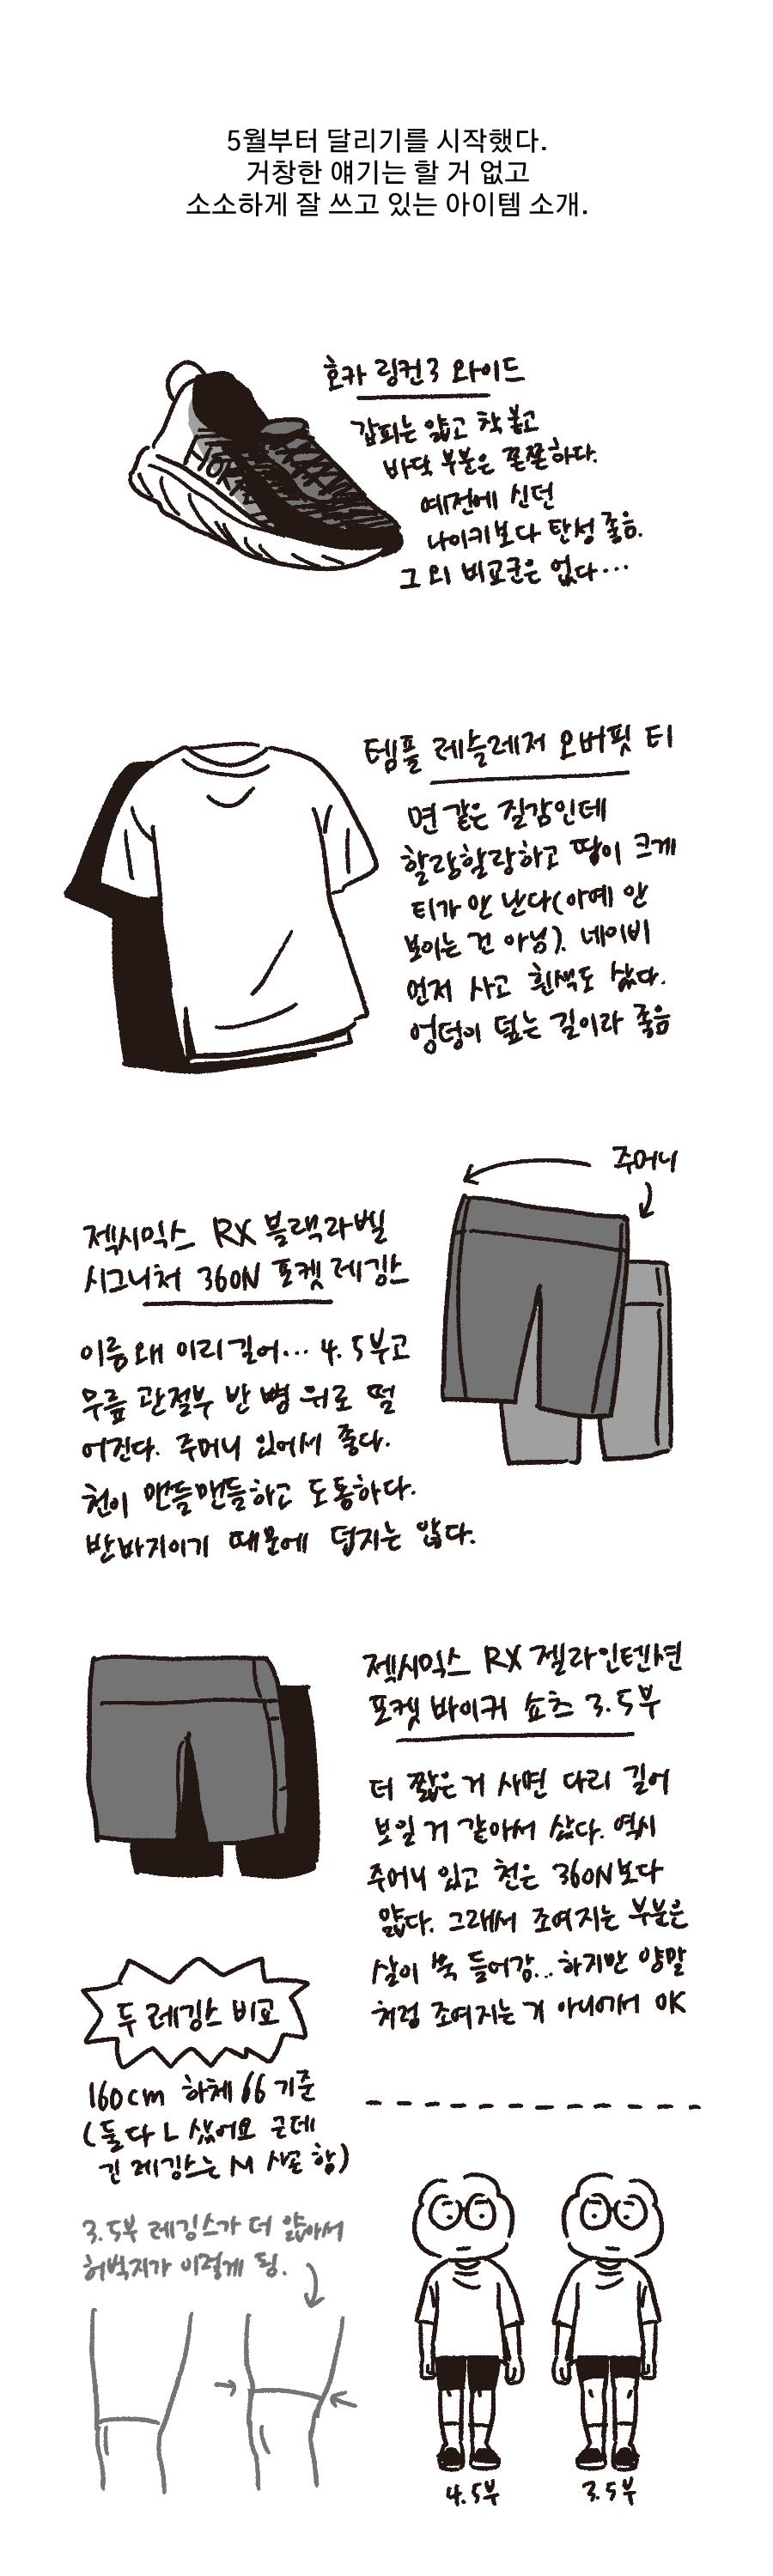 5월부터 달리기를 시작했다.
거창한 얘기는 할 거 없고
소소하게 잘 쓰고 있는 아이템 소개.
호카 링컨3 와이드
HOKA
갑피는 얇고 착 붙고
바닥 부분은 쫀쫀하다.
예전에 신던
나이키보다 탄성 좋음.
그 외 비교군은 없다...
템플 레슬레저 오버핏 티
면 같은 질감인데
할랑할랑하고 땀이 크게
티가 안 난다(아예 안
보이는 건 아님). 네이비
먼저 사고 흰색도 샀다.
엉덩이 덮는 길이라 좋음
주머니
젝시믹스 RX 블랙라벨
시그니처 360N 포켓 레깅스
이름 왜 이리 길어... 4.5부고
무릎 관절부 반 뼘 위로 떨
어진다. 주머니 있어서 좋다.
천이 맨들맨들하고 도톰하다.
반바지이기 때문에 덥지는 않다.
젝시믹스 RX 젤라인텐션
포켓 바이커 쇼츠 3.5부
더 짧은 거 사면 다리 길어
보일 거 같아서 샀다. 역시
주머니 있고 천은 360N보다
얇다. 그래서 조여지는 부분은
살이 쏙 들어감... 하지만 양말
처럼 조여지는 거 아니어서 OK
두 레깅스 비교
160cm 하체 66 기준
(둘 다 L 샀어요 근데
긴 레깅스는 M 사곤 함)
3.5부 레깅스가 더 얇아서
허벅지가 이렇게 됨.
4.5부
3.5부